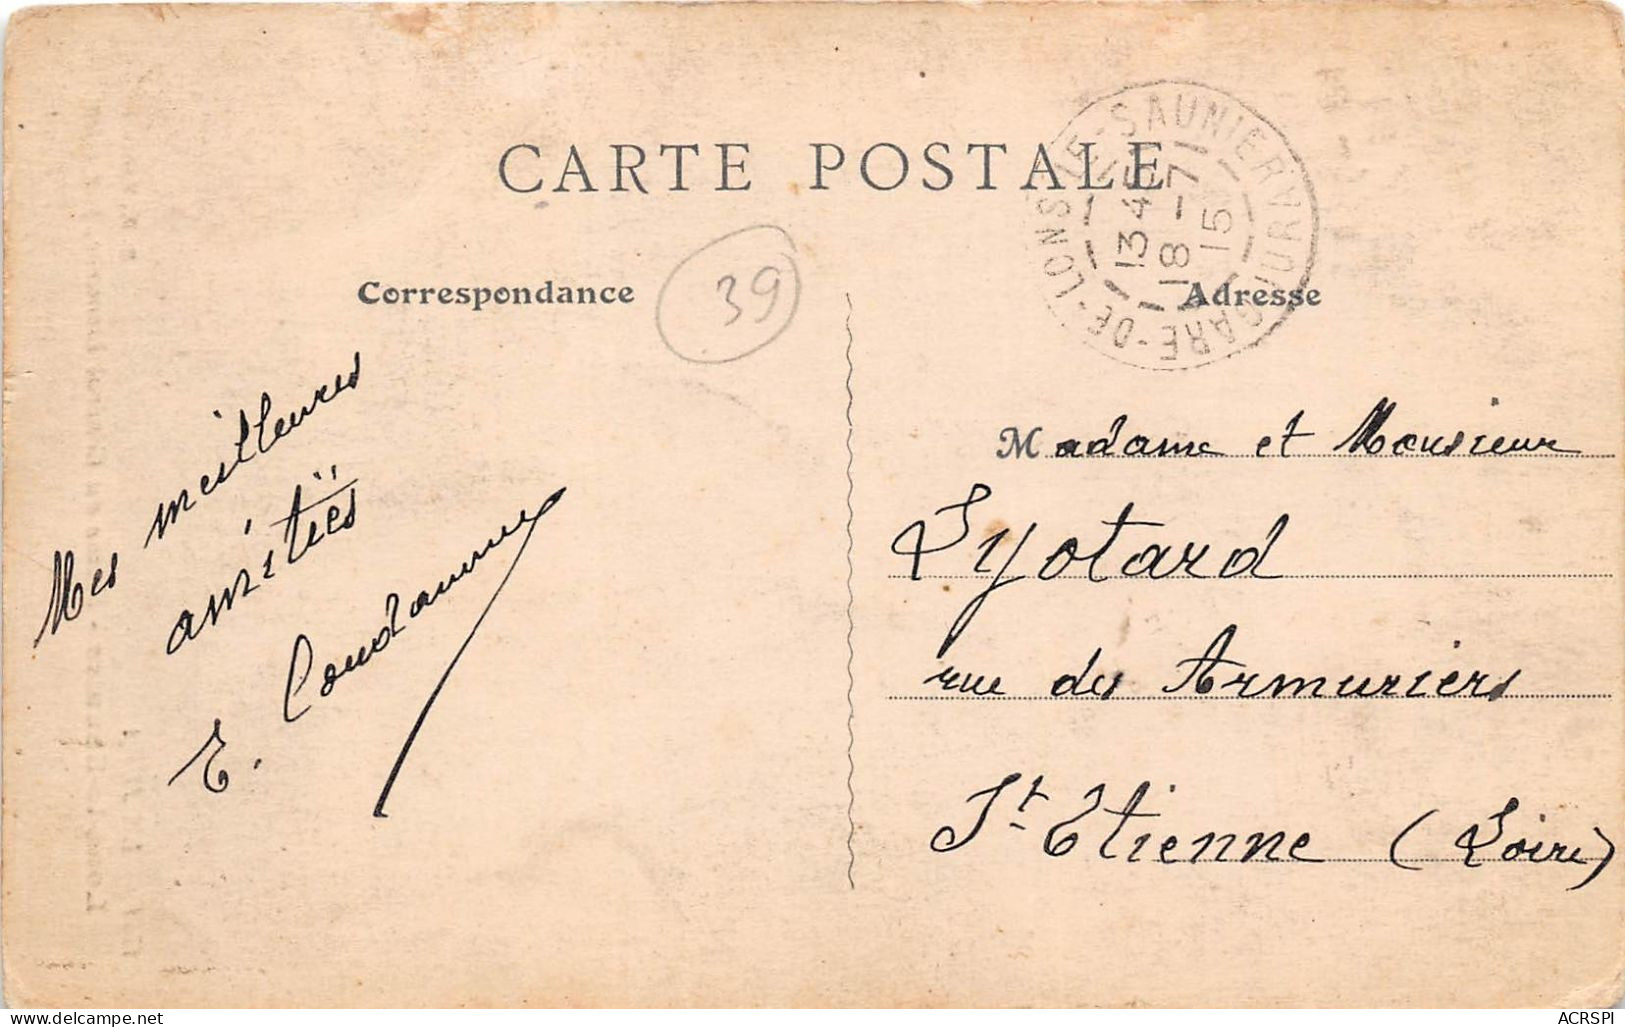 CARTE POSTALE
GARE-DE-LONS-LE-SAUNIER JURA
13 45
18 - 7
15
Correspondance
39
Adresse
Mes meilleures
amitiés
E.
Madame et Monsieur
Lyotard
rue des Armuriers
St-Etienne (Loire)
www.delcampe.net
ACRSPI